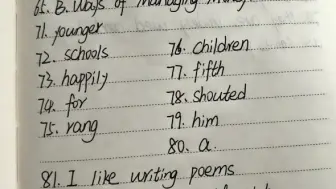 65. B. Ways of Managing Money.
71. younger
72. schools
73. happily
74. for
75. rang
76. children
77. fifth
78. shouted
79. him
80. a.
81. I like writing poems